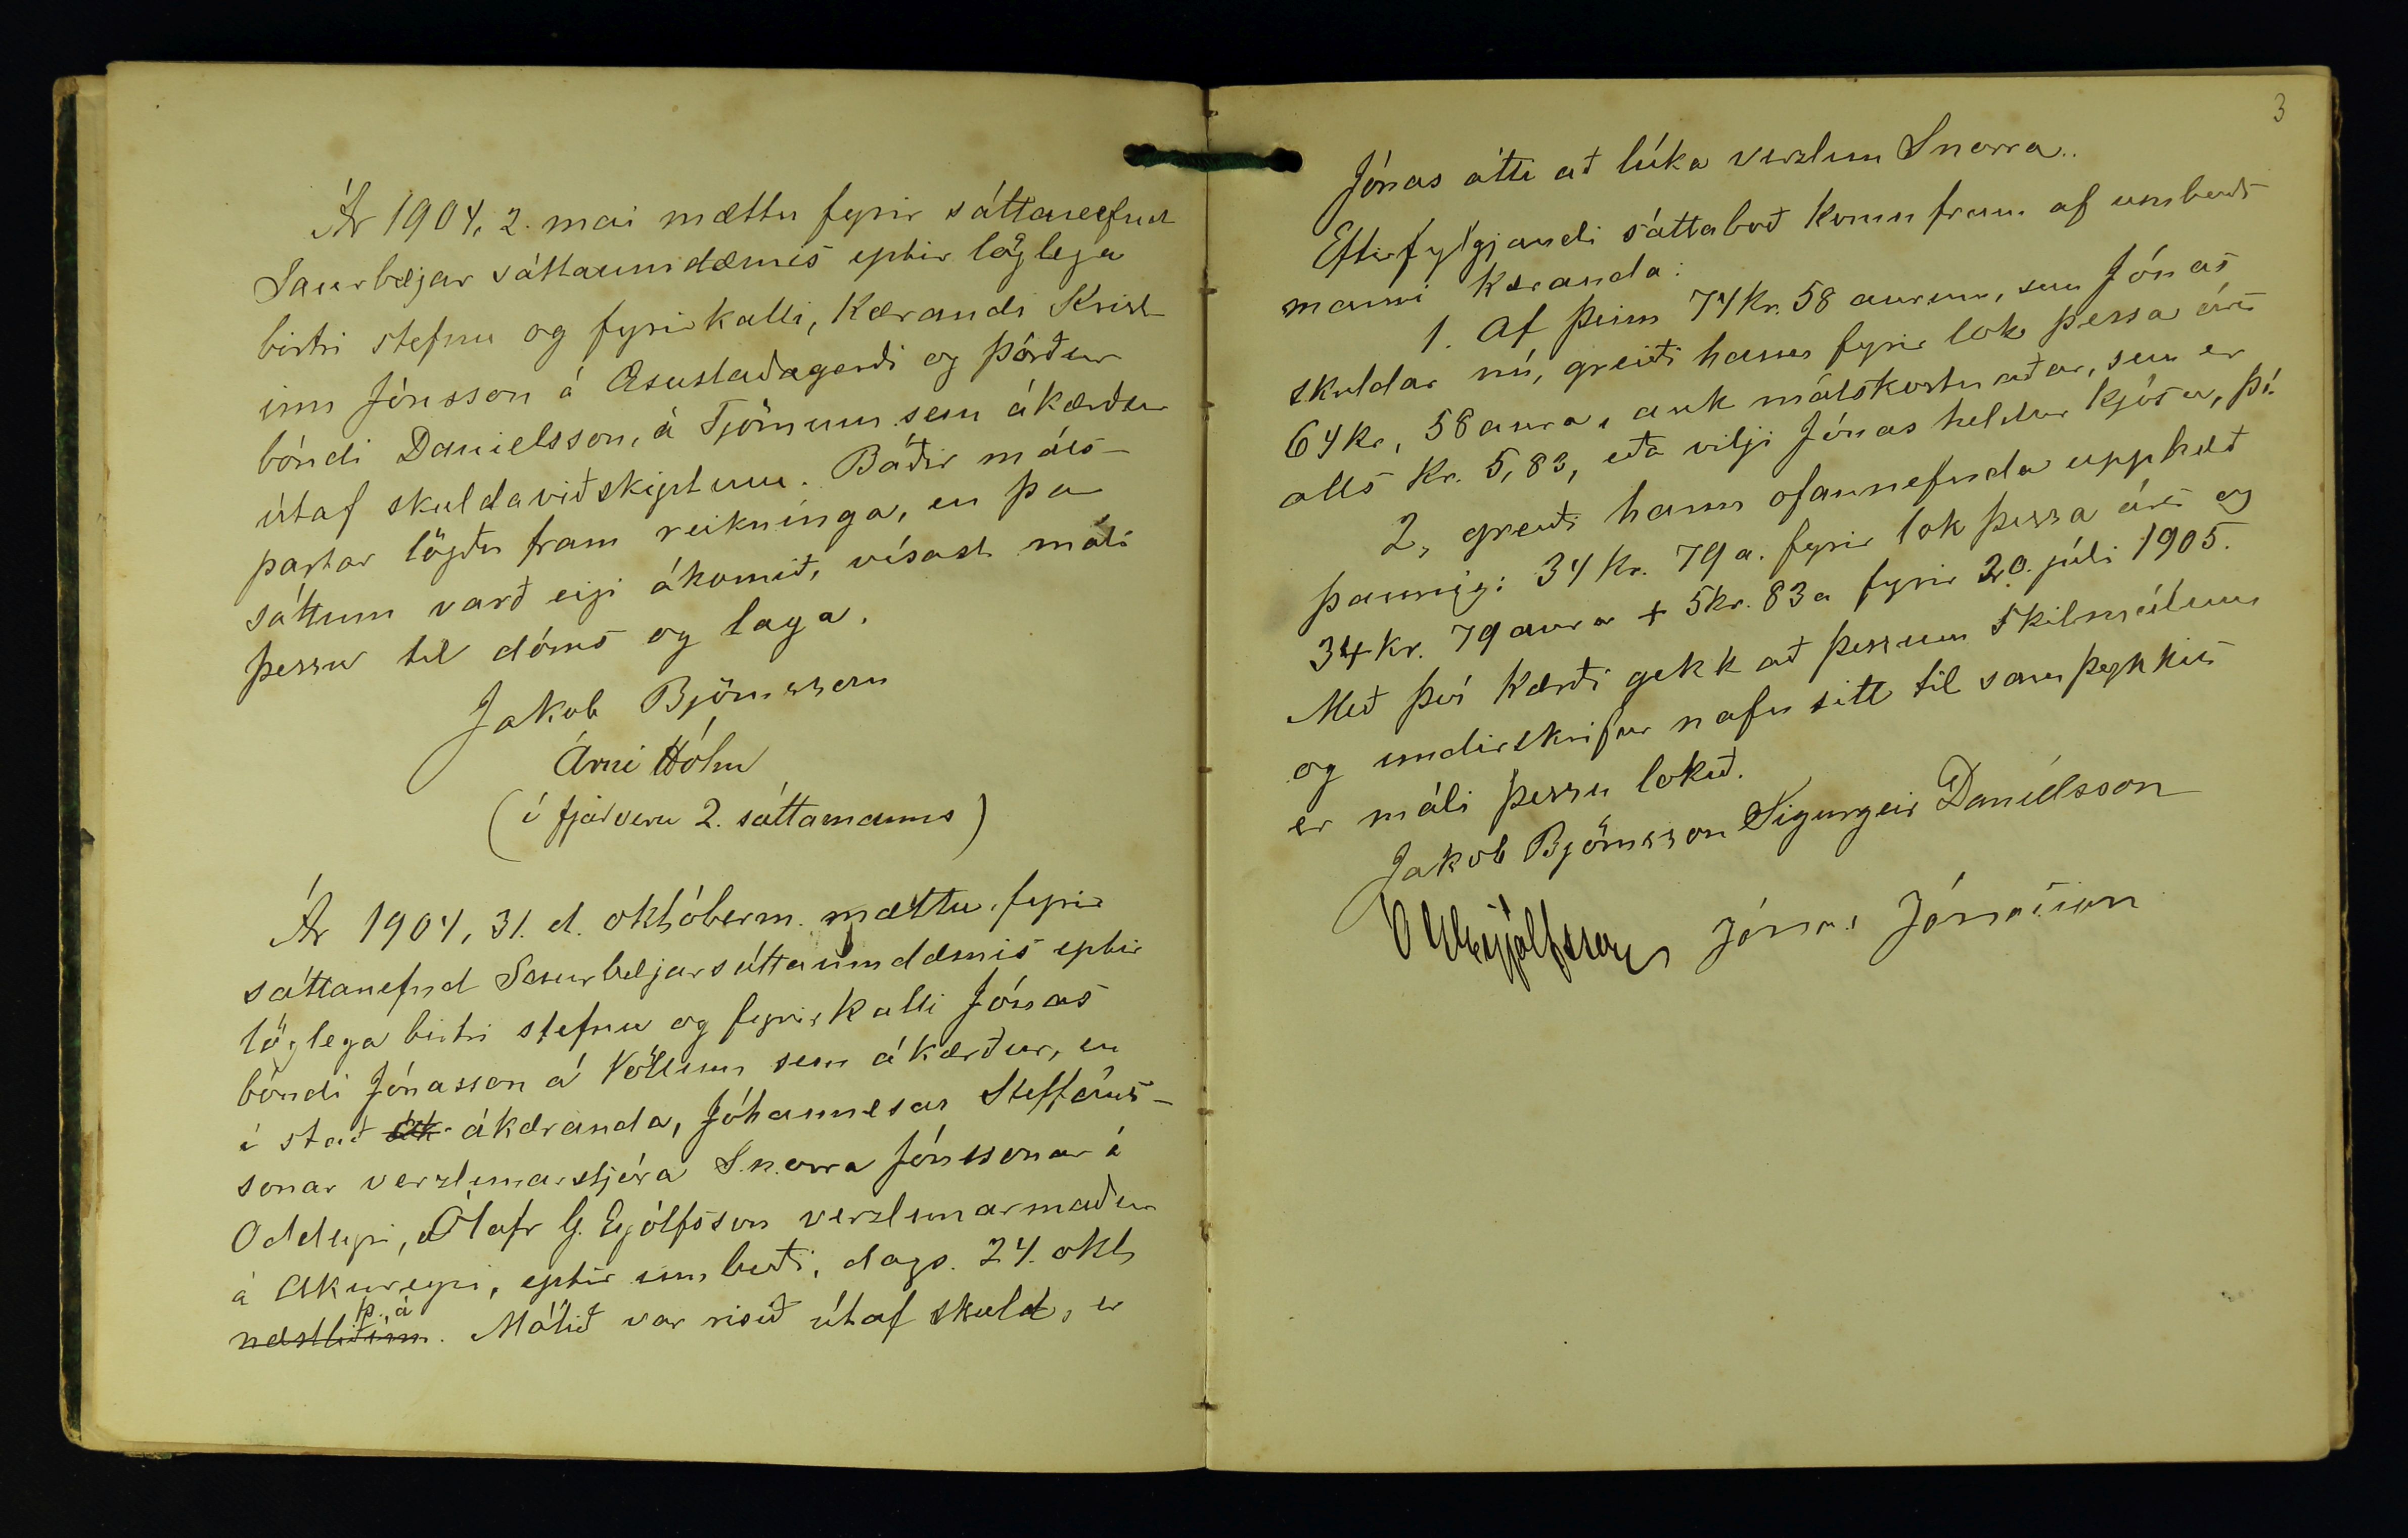 Ár 1904, 2. mai mættu fyrir sáttanefnd
Saurbæjar sáttaumdæmis eptir löglega
birtri stefnu og fyrirkalli, kærandi Krist-
inn Jónsson á Æsustaðagerði og Þórður
bóndi Danielsson, á Tjörnum sem ákærður
útaf skuldaviðskiptum. Báðir máls-
partar lögðu fram reikninga, en þar
sáttum varð eigi ákomið, vísast máli
þessu til dóms og laga.
Jakob Björnsson
Árni Hólm
(í fjærveru 2. sáttamanns)
Ár 1904, 31. d. októberm. mættu fyrir
sáttanefnd Saurbæjarsáttaumdæmis eptir
löglega birtri stefnu og fyrirkalli Jónas
bóndi Jónasson á Völlum sem ákærður, en
í stað ák ákæranda, Jóhannesar Steffáns-
sonar verzlunarstjóra Snorra Jónssonar á
Oddeyri, Ólafr G. Eyjólfsson verzlunarmaður
á Akureyri, eptir umboði, dags. 24. okt.
þ. á
næstliðinn. Málið var risið útaf skuld, er
3
Jónas átti að lúka verzlun Snorra.
Eftirfylgjandi sáttaboð komu fram af umboðs
manni kæranda:
1. Af þeim 74 kr. 58 aurum, sem Jónas
skuldar nú, greiði hann fyrir lok þessa árs
64 kr, 58 aura, auk málskostnaðar, sem er
alls kr. 5,83, eða vilji Jónas heldur kjósa, þá
2, greiði hann ofannefnda upphæð
þannig: 34 kr. 79 a. fyrir lok þessa árs og
34 kr. 79 aura + 5 kr. 83 a fyrir 20. júli 1905.
Með því kærði gekk að þessum skilmálum
og undirskrifar nafn sitt til samþykkis
er máli þessu lokið.
Jakob Björnsson Sigurgeir Daníelsson
Ó G Eyjólfsson Jónas Jónasson